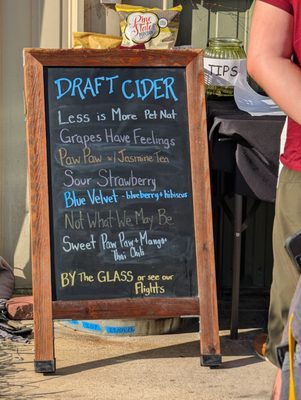 Pine State
TIPS
DRAFT CIDER
Less is More Pet Nat
Grapes Have Feelings
Paw Paw w/ Jasmine Tea
Sour Strawberry
Blue Velvet - blueberry + hibiscus
Not What We May Be
Sweet Paw Paw + Mango +
Thai Chili
By The Glass or see our
Flights